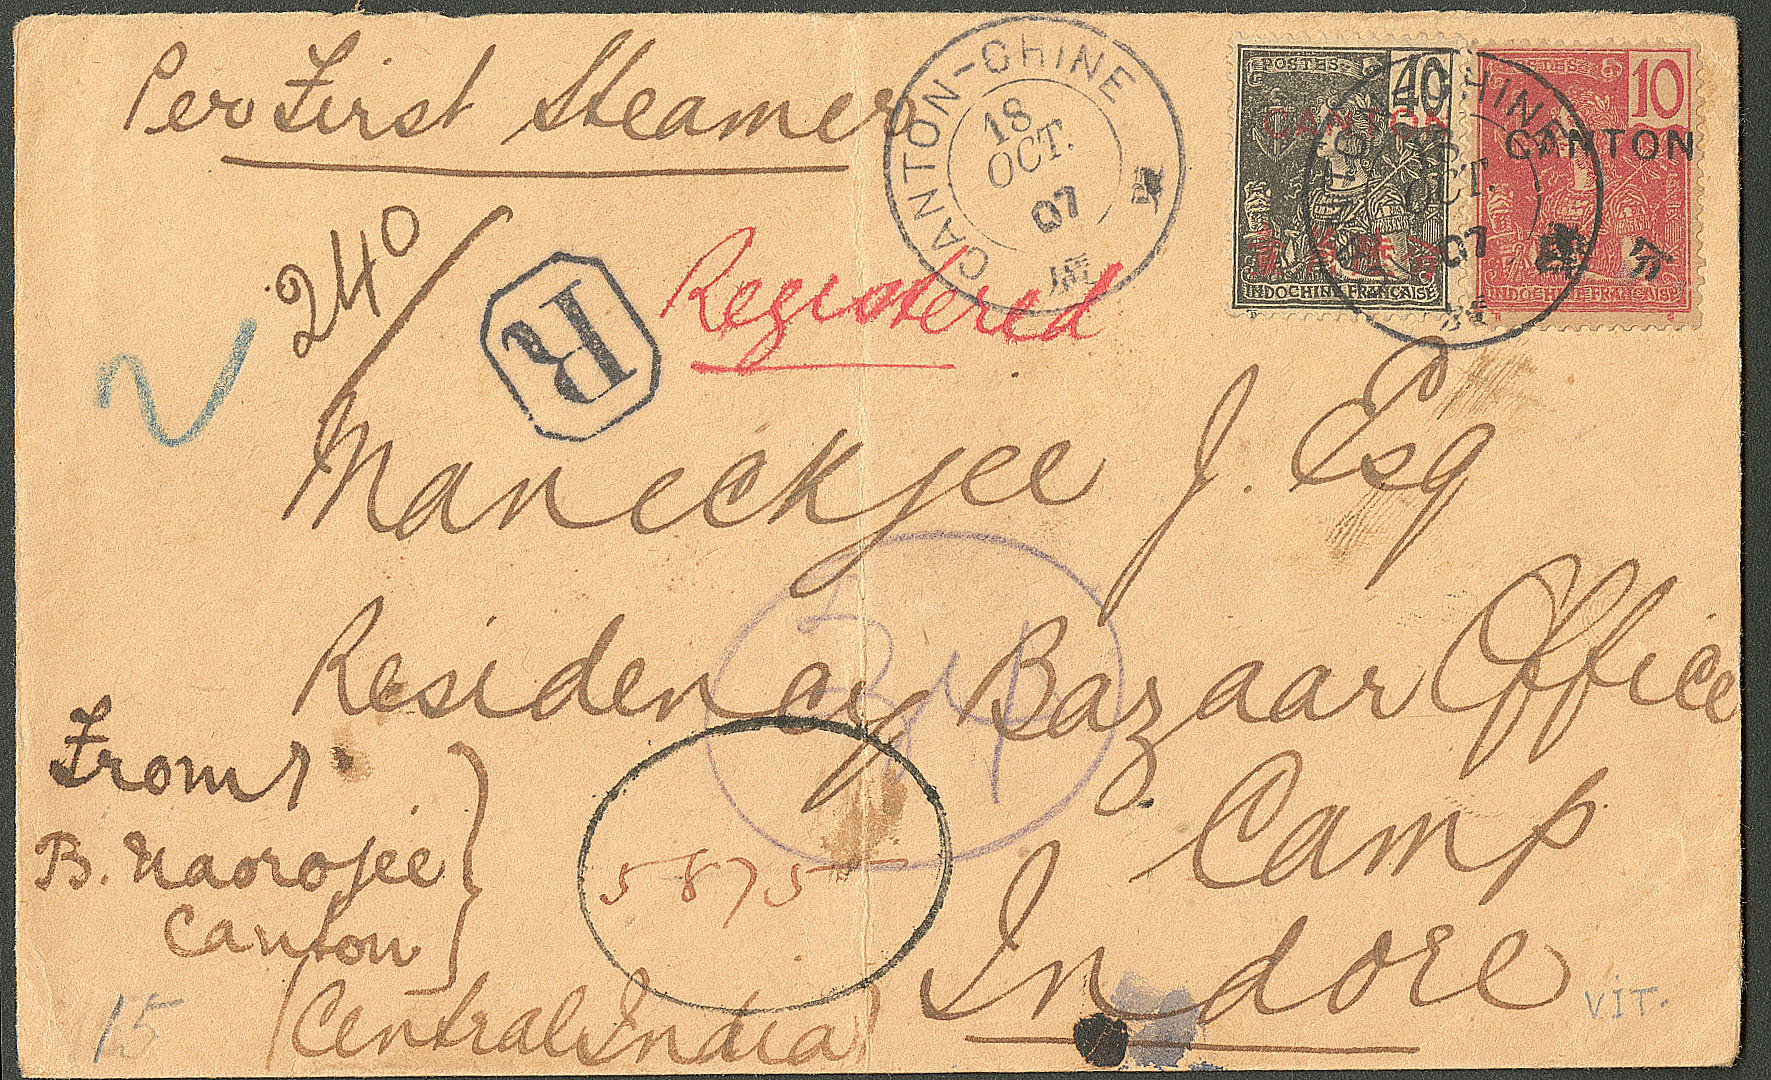 Per First Steamer
CANTON-CHINE
18
OCT.
07
POSTES
40
CANTON
INDOCHINE FRANÇAISE
10
CANTON
INDOCHINE FRANÇAISE
CHINE
OCT.
07
240
R
Registered
Maneckjee J. Esq
Residency Bazaar Office
Camp
Indore
(Central India)
From
B. Naorojee
Canton
5875
15
VIT.